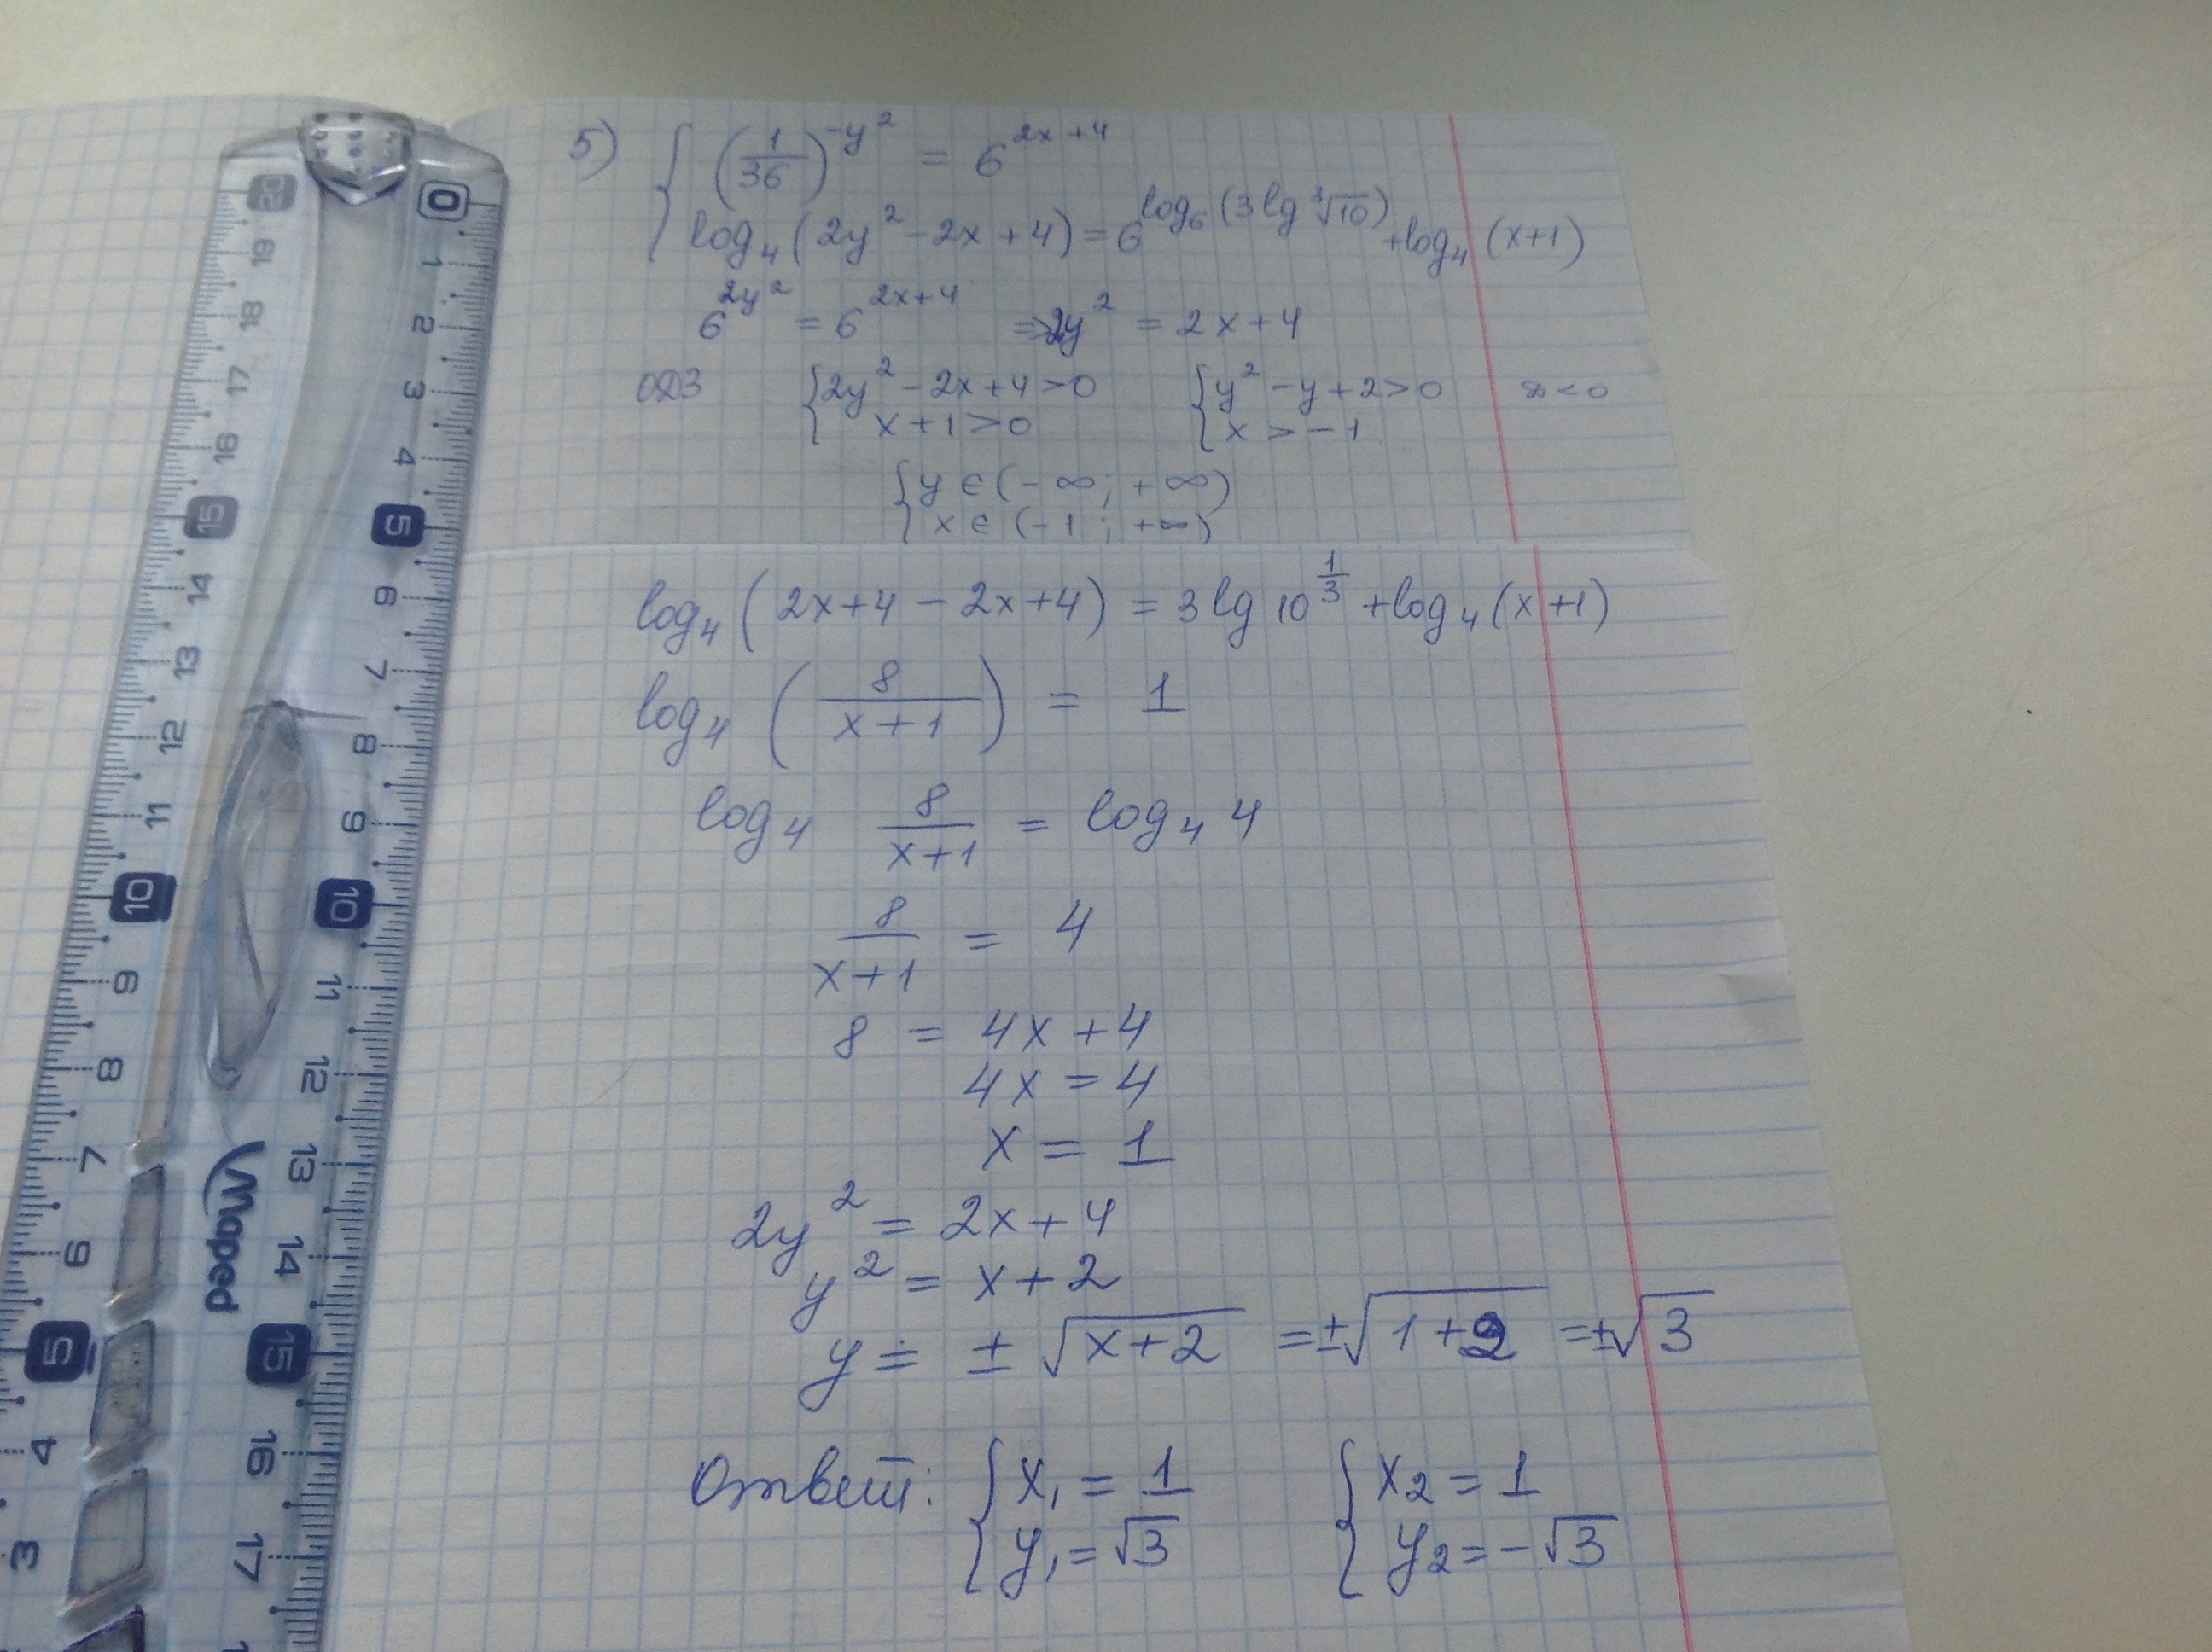 5) { (1/36)^(-y²) = 6^(2x+4)
log₄(2y² - 2x + 4) = 6^(log₆(3lg ³√10)) + log₄(x+1)
6^(2y²) = 6^(2x+4) => 2y² = 2x + 4
ОДЗ { 2y² - 2x + 4 > 0 { y² - y + 2 > 0 D < 0
x + 1 > 0 x > -1
{ y ∈ (-∞; +∞)
x ∈ (-1; +∞)
log₄(2x+4 - 2x+4) = 3lg 10^(1/3) + log₄(x+1)
log₄(8/(x+1)) = 1
log₄ 8/(x+1) = log₄ 4
8/(x+1) = 4
8 = 4x + 4
4x = 4
x = 1
2y² = 2x + 4
y² = x + 2
y = ± √(x+2) = ±√(1+2) = ±√3
Ответ: { x₁ = 1 { x₂ = 1
y₁ = √3 y₂ = -√3
0
1
2
3
4
5
6
7
8
9
10
11
12
13
14
15
16
17
20
19
18
17
16
15
14
13
12
11
10
9
8
7
6
5
4
3
Maped